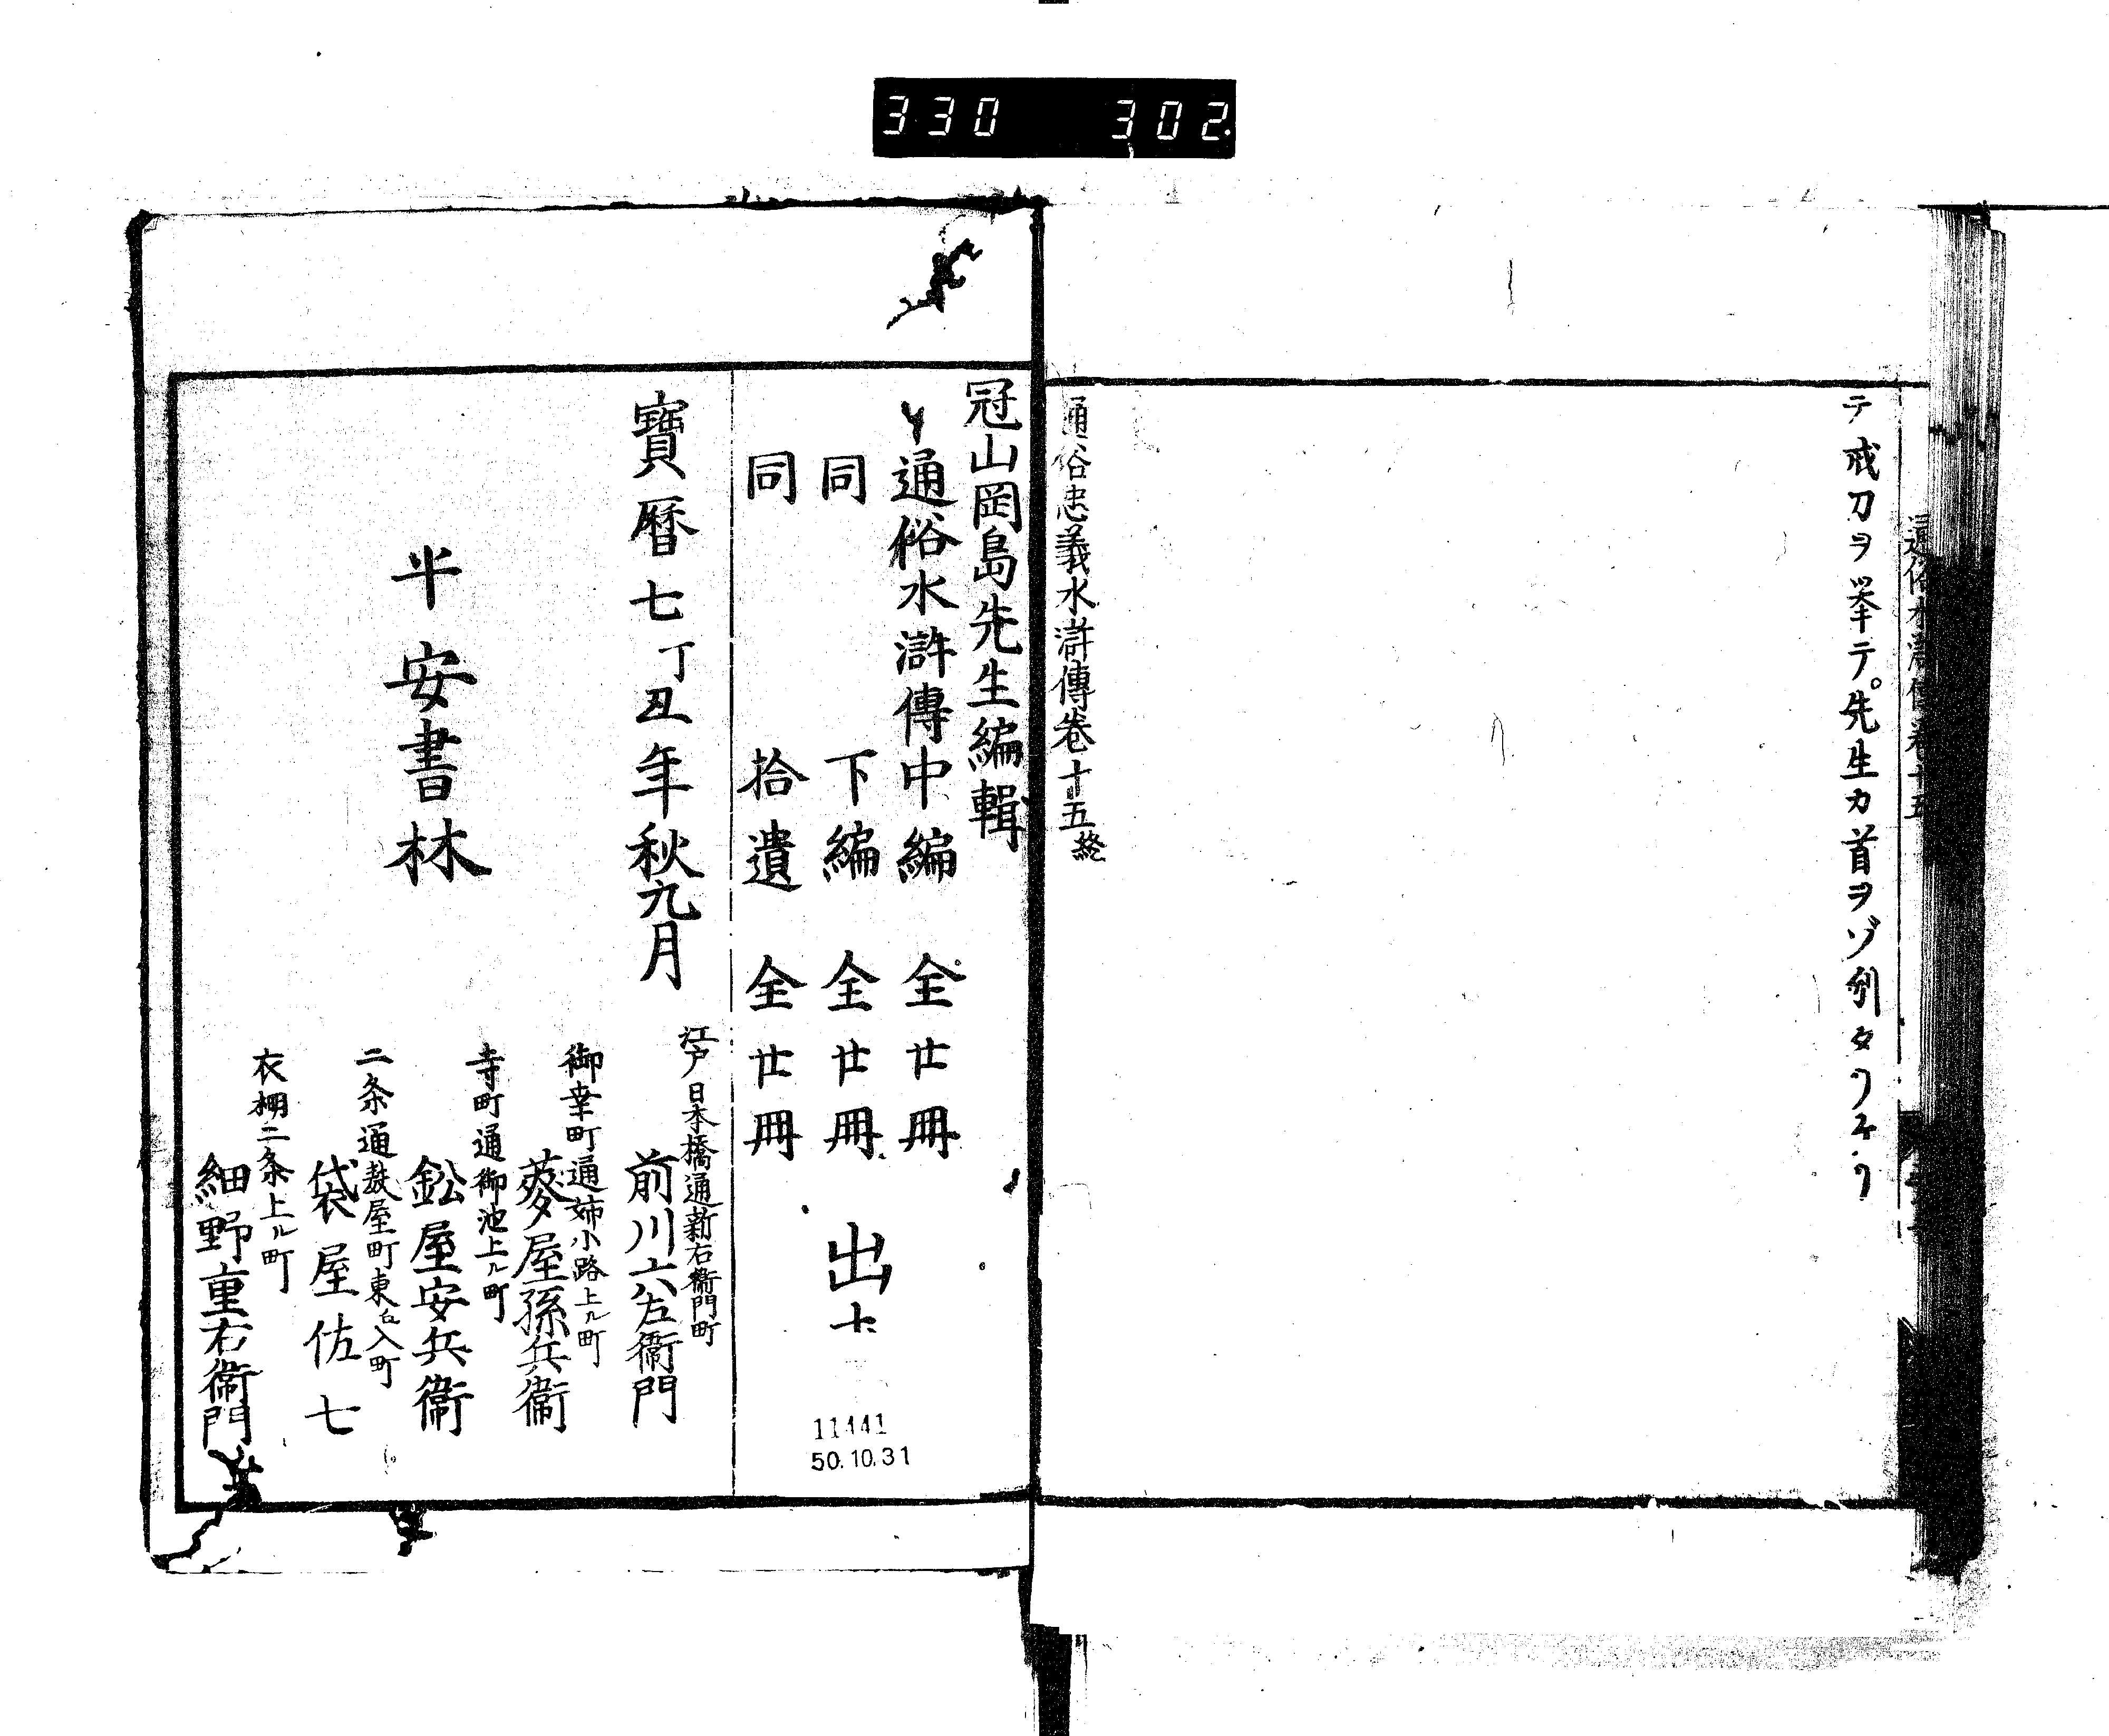 330 302
テ戒刀ヲ挙テ。先生カ首ヲゾ刎タリケリ
通俗忠義水滸傳巻十五終
冠山岡島先生編輯
通俗水滸傳中編 全廿冊
同 下編 全廿冊 出
同 拾遺 全廿冊
寶暦七丁丑年秋九月
江戸日本橋通新右衞門町
前川六左衞門
御幸町通姉小路上ル町
菱屋孫兵衞
平安書林
寺町通御池上ル町
鈆屋安兵衞
二条通麸屋町東ヘ入町
袋屋佐七
衣棚二条上ル町
細野重右衞門
11441
50.10.31